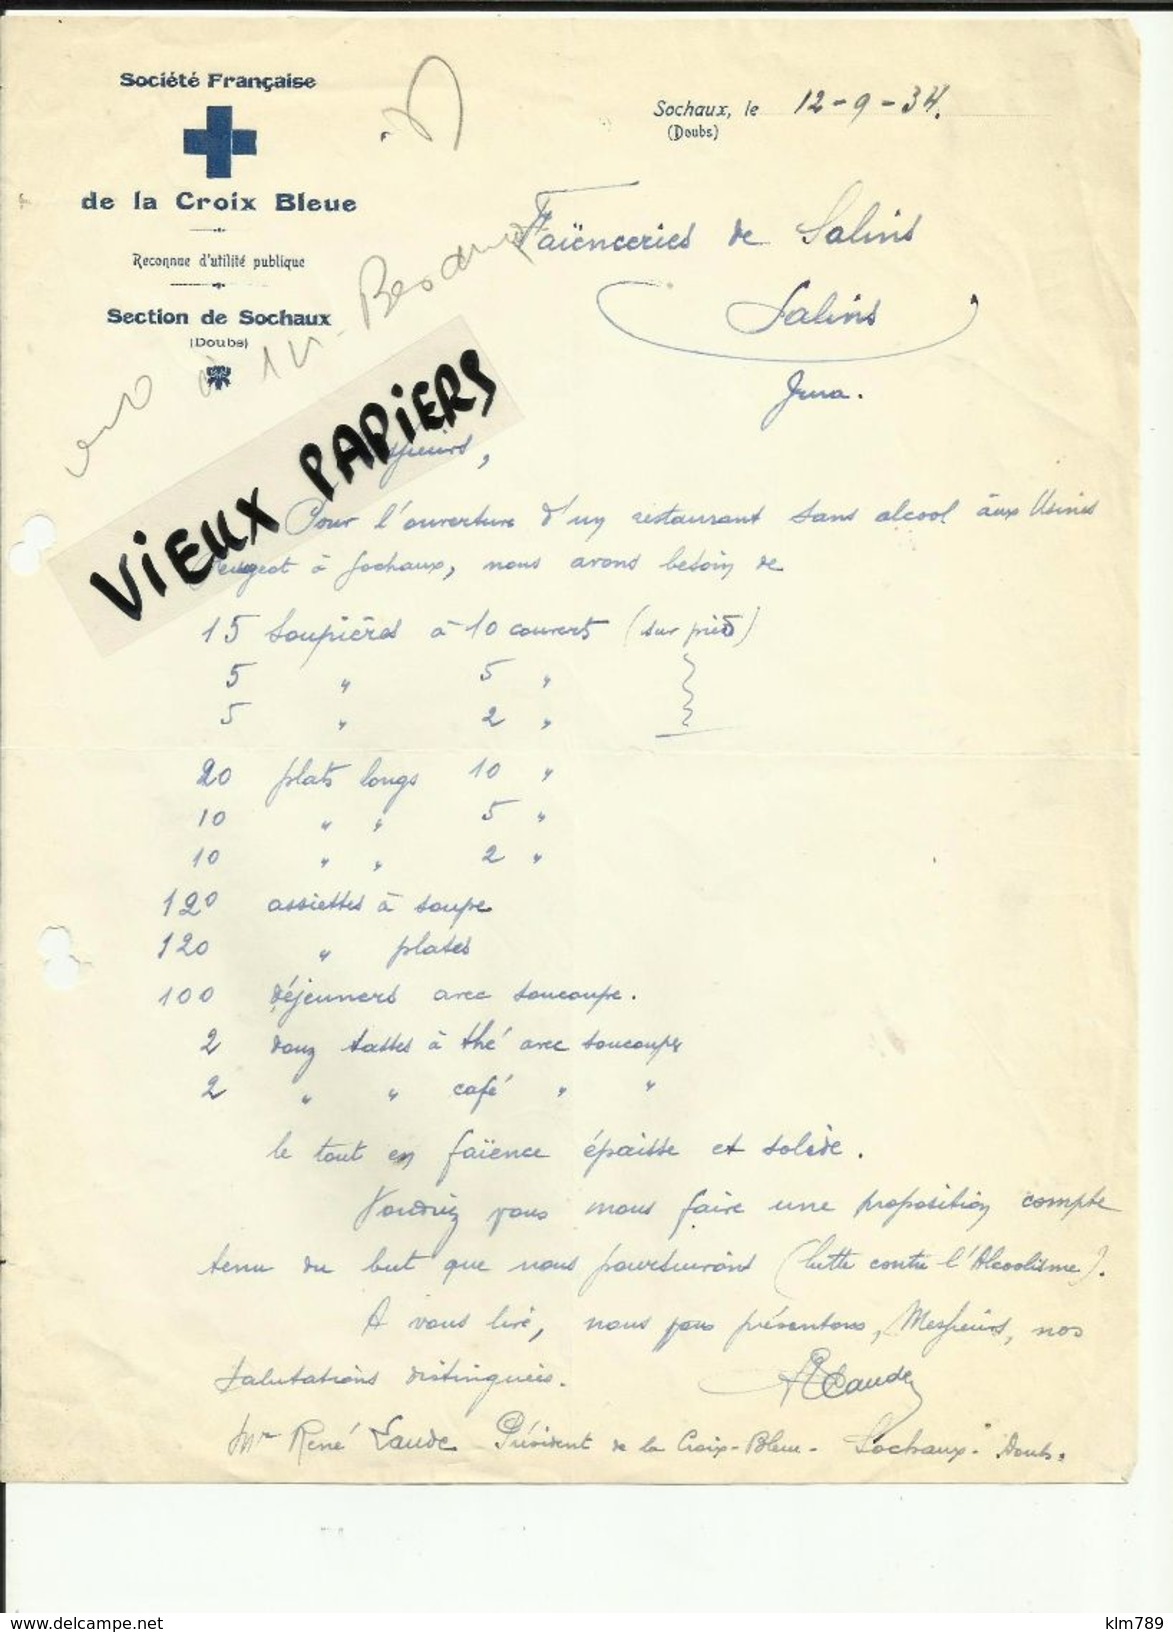 Société Française
de la Croix Bleue
Reconnue d'utilité publique
Section de Sochaux
(Doubs)
Sochaux, le 12-9-34.
(Doubs)
Faïenceries de Salins
Salins
Jura.
VIEUX PAPIERS
Pour l'ouverture d'un restaurant sans alcool aux Usines
Peugeot à Sochaux, nous avons besoin de
15 Soupières à 10 couverts (sur pied)
5 " 5 "
5 " 2 "
20 plats longs 10 "
10 " " 5 "
10 " " 2 "
120 assiettes à soupe
120 " plates
100 déjeuners avec soucoupe.
2 douz tasses à thé avec soucoupes
2 " " café " "
le tout en faïence épaisse et solide.
Voudriez vous nous faire une proposition compte
tenu du but que nous poursuivons (lutte contre l'Alcoolisme).
A vous lire, nous vous présentons, Messieurs, nos
salutations distinguées.
Mr René Laude Président de la Croix-Bleue - Sochaux - Doubs.
www.delcampe.net
klm789